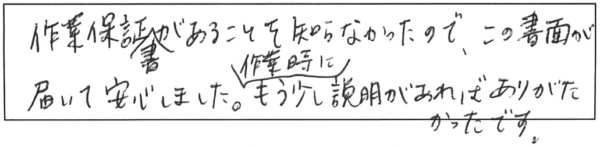 作業保証書があることを知らなかったので、この書面が
届いて安心しました。作業時にもう少し説明があればありがた
かったです。